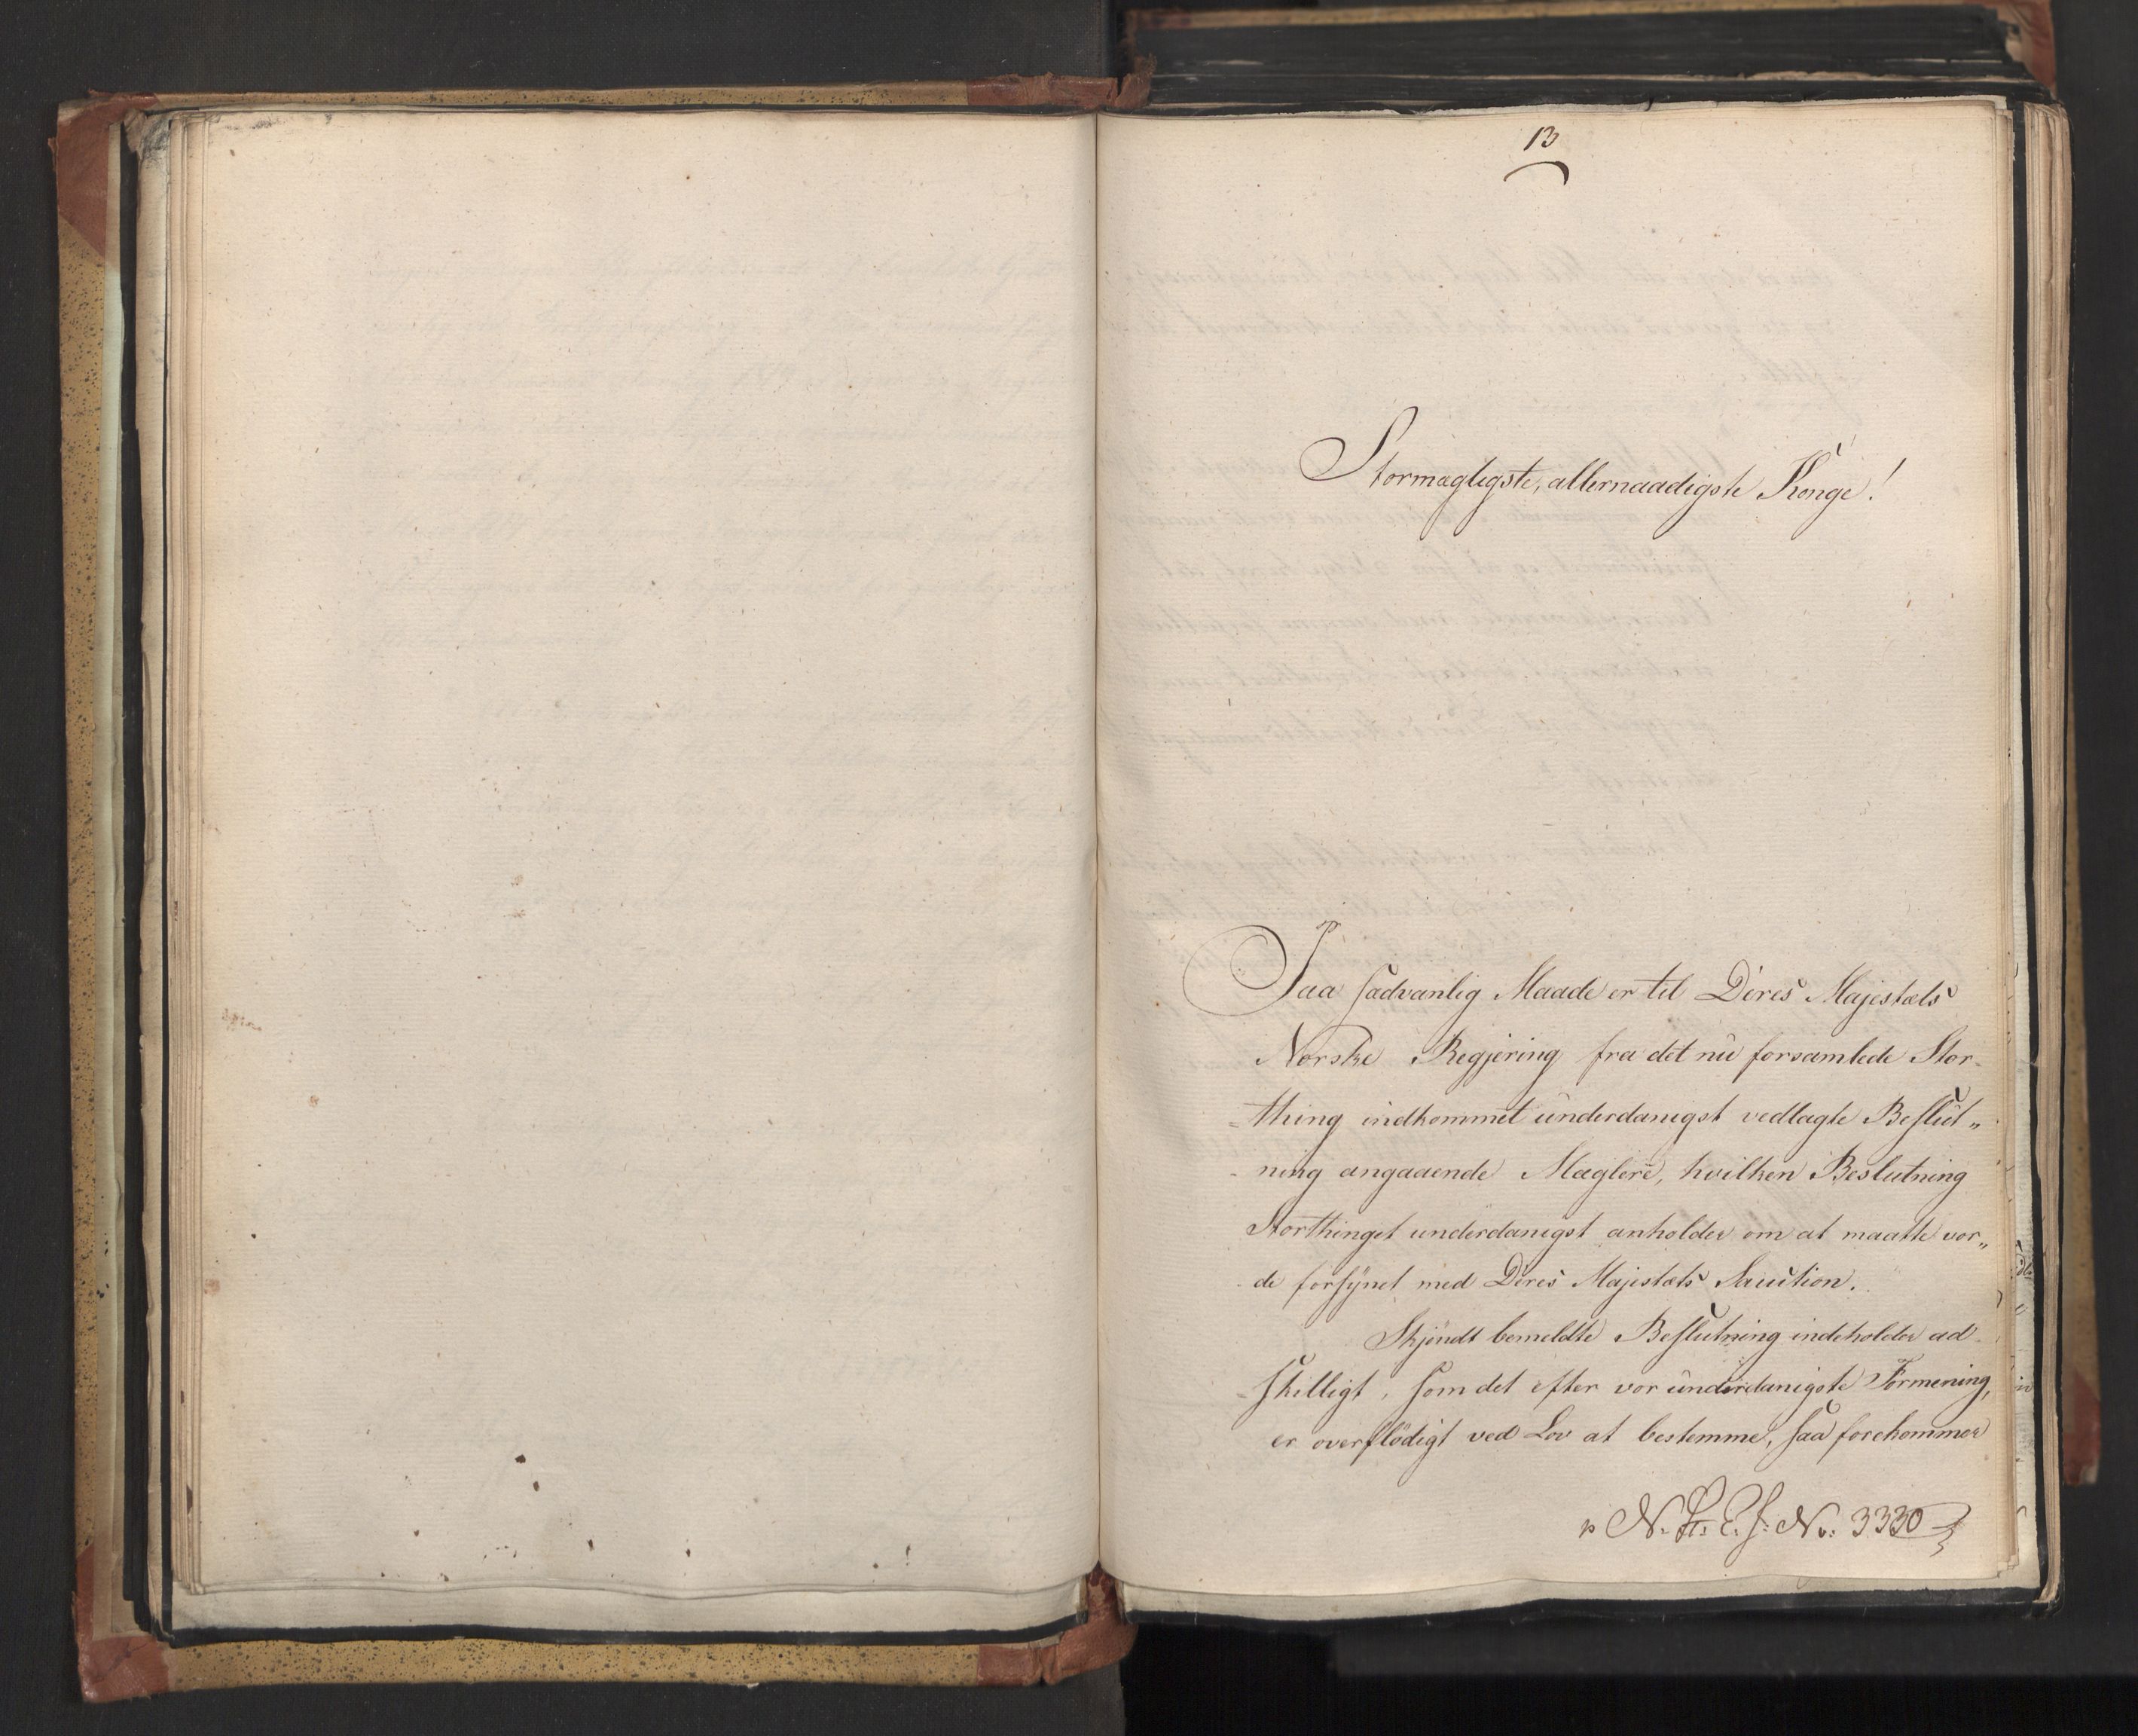 13
Stormægtigste, allernaadigste Konge!
Paa sædvanlig Maade er til Deres Majestæts
Norske Regjering fra det nu forsamlede Stor-
-thing indkommet underdanigst vedlagte Beslut„
-ning angaaende Mæglere, hvilken Beslutning
Storthinget underdanigst anholder om at maatte vor„
-de forsynet med Deres Majestæts Sanction.
Skjøndt bemeldte Beslutning indeholder ad-
-skilligt, som det efter vor underdanigste Formening,
er overflødigt ved Lov at bestemme, saa forekommer
N. St. E. J. No: 3330